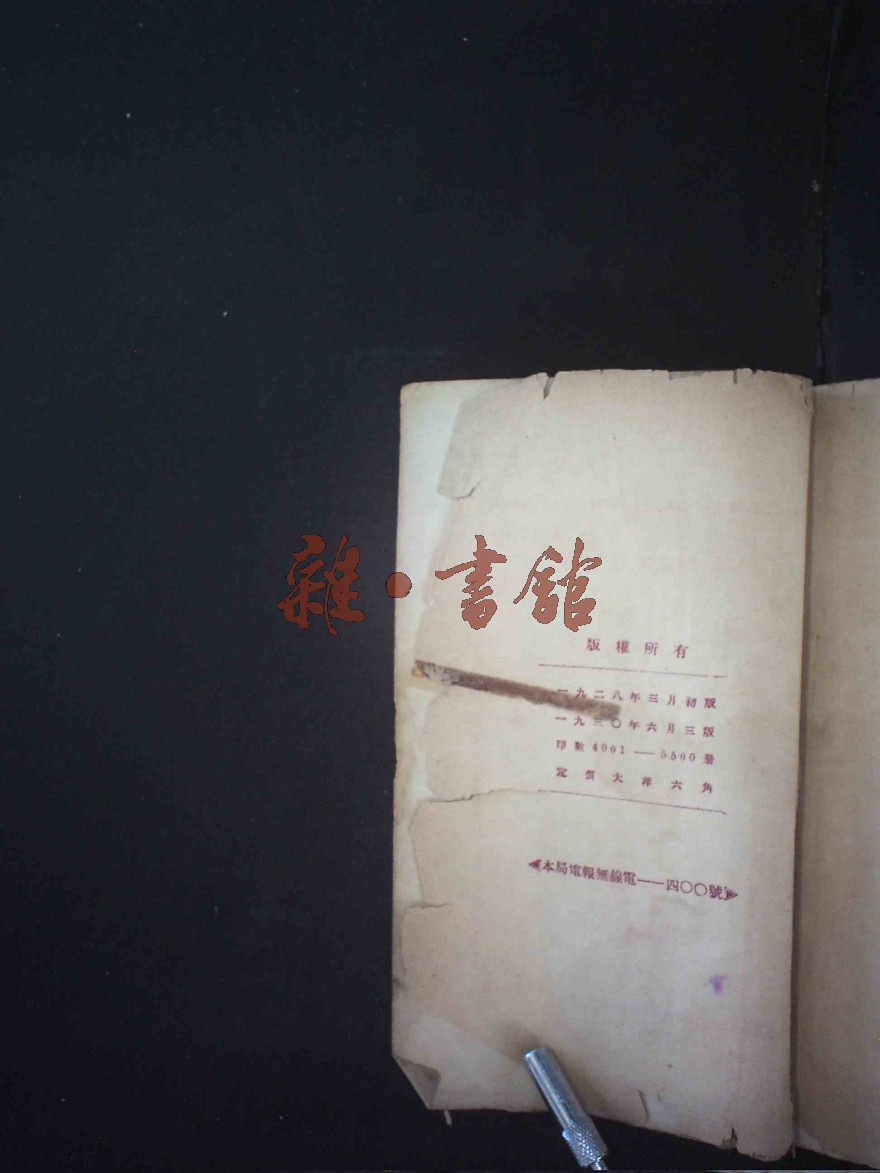 雜·書館
版權所有
一九二八年三月初版
一九三〇年六月三版
印數4001——5500冊
定價大洋六角
本局電報無線電——四〇〇號